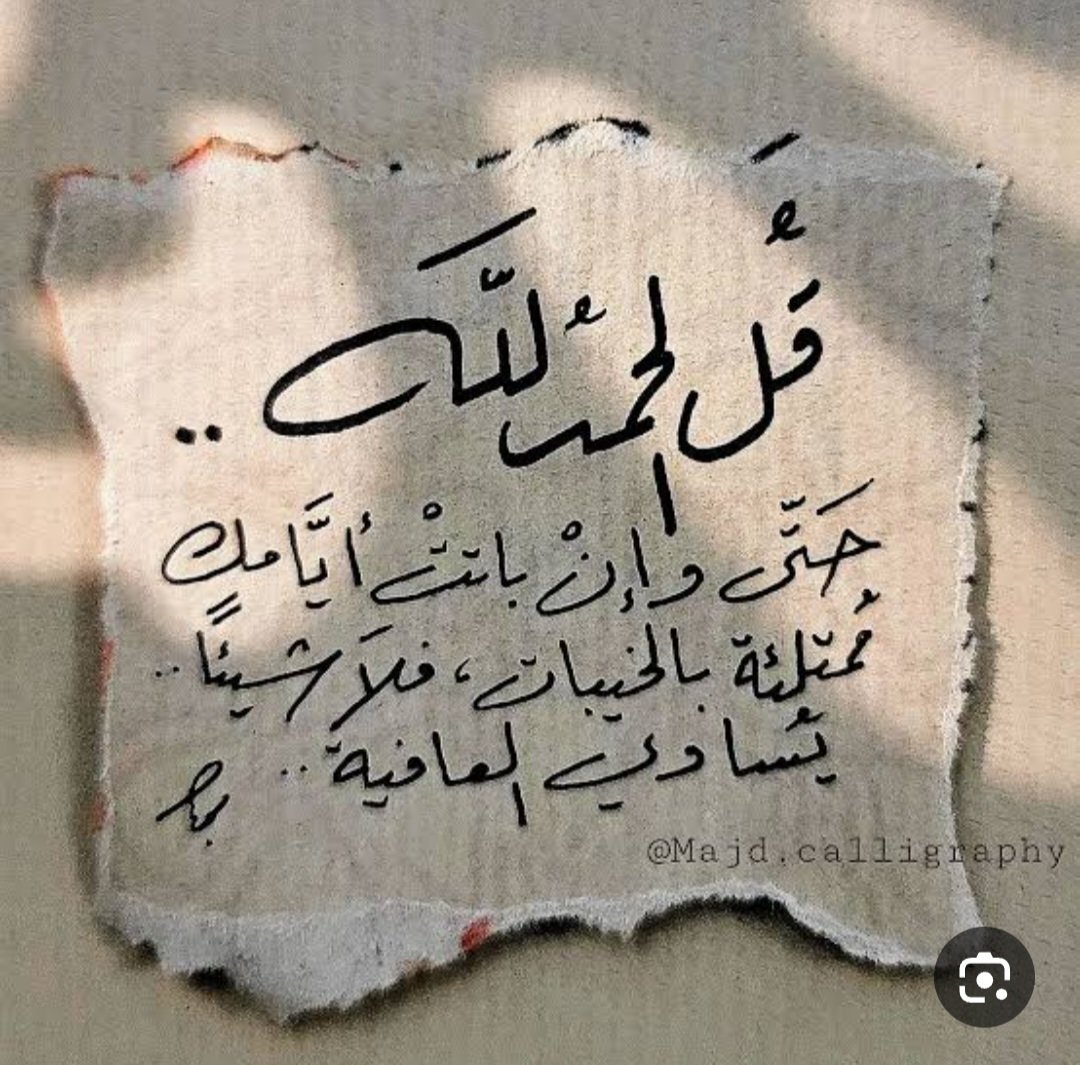 قُل الحمدُ للّه ..
حَتّى وإنْ باتتْ أيَّامك
مُمتلئة بالخيبات، فلاَ شيئاً ..
يُساوي العافية ..
@Majd.calligraphy